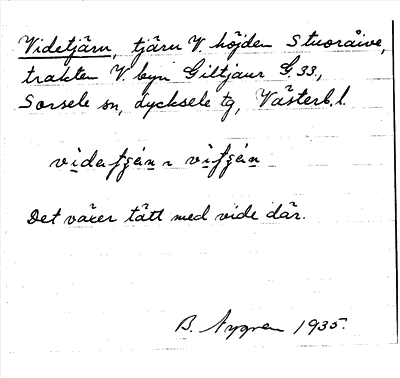 Videtjärn, tjärn V. höjden Stuoråive,
trakten V. byn Giltjaur G.33,
Sorsele sn, Lycksele tg, Västerb. l.
Det växer tätt med vide där.
B. Nygren 1935.